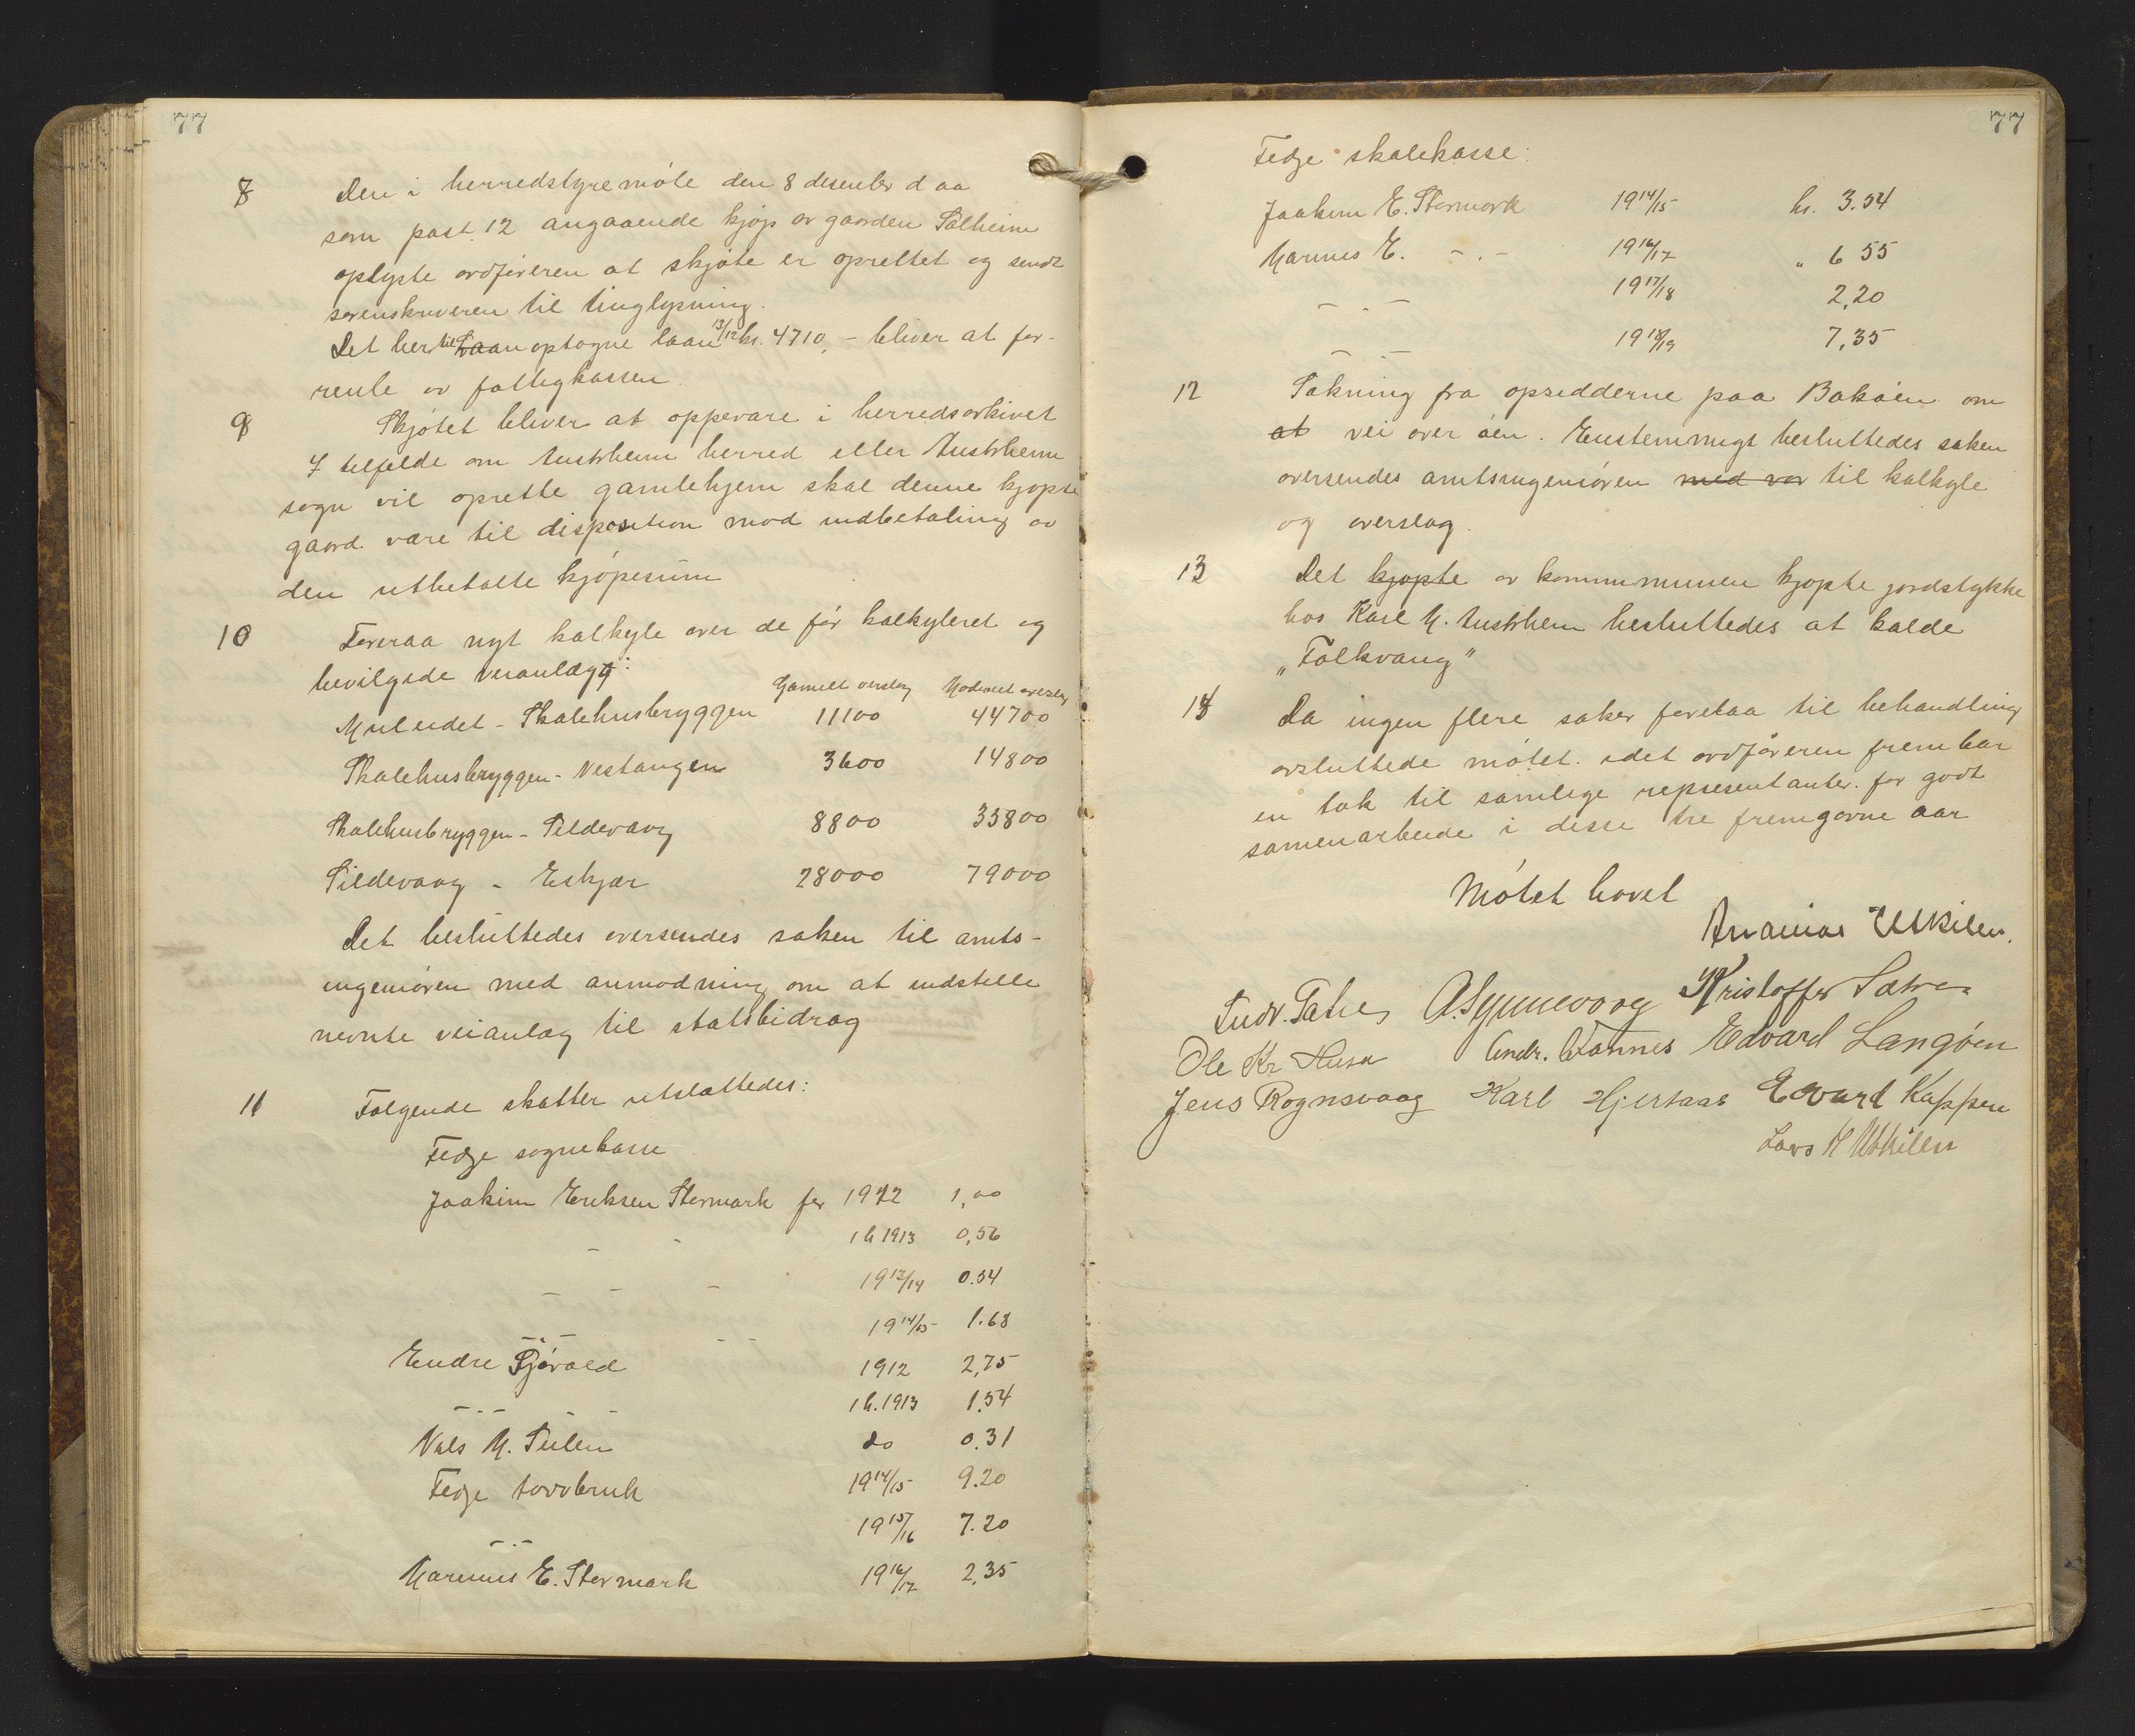 77
8 Den i herredstyremöte den 8 desember d aa
som post 12 angaaende kjöp av gaarden Solheim
oplyste ordföreren at skjöte er oprettet og sendt
sorenskriveren til tinglysning.
Det hertil optagne laan 13/12 kr. 4710,- bliver at for-
rente av fattigkassen.
9 Skjötet bliver at oppevare i herredsarkivet
I tilfelde om Austrheim herred eller Austrheim
sogn vil oprette gamlehjem skal denne kjöpte
gaard være til disposition mod indbetaling av
den utbetalte kjöpesum
10 Foreraa nyt kalkyle over de för kalkyleret og
bevilgede veianlægg:
Gamelt overslag Moderat overslag
Muleidet - Skolehusbryggen 11100 44700
Skolehusbryggen - Vestangen 3600 14800
Skolehusbryggen - Sildevaag 8800 35800
Sildevaag - Eskjær 28000 79000
Det besluttedes oversendes saken til amts-
ingeniören med anmodning om at indstille
nevnte veianlæg til statsbidrag
11 Fölgende skatter utslattedes:
Fedje sognekasse
Joakim Eriksen Stormark for 1912 1,00
- - 1 h 1913 0,56
- - - 1913/14 0.54
1914/15 1.68
Endre Gjövold - - 1912 2,75
- - - - 1 h. 1913 1.54
Nils M. Tulen do 0.31
Fedje torvbruk 1914/15 9.20
- - 1915/16 7.20
Marinus E. Stormark 1916/17 2,35
77
Fedje skolekasse:
Joakim E. Stormark 1914/15 kr. 3.54
Marinus E. - . - 1916/17 " 6 55
- . - 1917/18 2,20
- - 1918/19 7,35
12 Sökning fra opsidderne paa Baköen om
at vei over öen. Enstemmigt besluttedes saken
oversendes amtsingeniören med vor til kalkyle
og overslag.
13 Det kjöpte av kommunen kjöpte jordstykke
hos Karl M. Austrheim besluttedes at kalde
"Folkvang"
14 Da ingen flere saker forelaa til behandling
avsluttede mötet. idet ordföreren frembar
en tak til samlige representanter. for godt
samenarbeide i disse tre fremgangne aar
Mötet hævet
Ananias Utkilen.
Andr. Sætre A. Synnevaag Kristoffer Sætre
Ole Kr Husa Andr. Fonnes Edvard Langöen
Jens Rognsvaag Karl Hjertaas Edvard Kappen
Lars H Utkilen